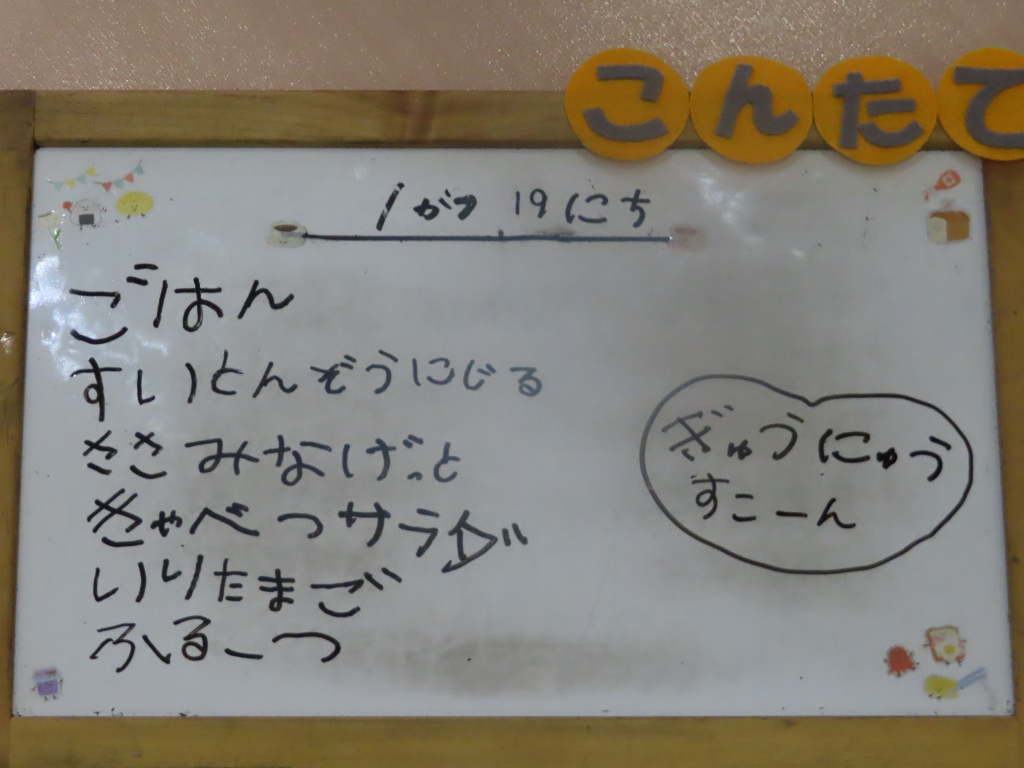 こんたて
1がつ 19にち
ごはん
すいとんぞうにじる
ささみなげっと
きゃべつサラダ
いりたまご
ふるーつ
ぎゅうにゅう
すこーん